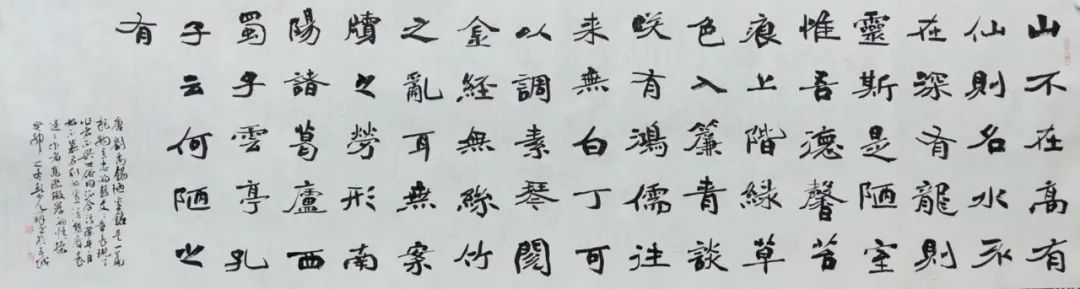 山不在高有
仙則名水不
在深有龍則
靈斯是陋室
惟吾德馨苔
痕上階綠草
色入簾青談
咲有鴻儒往
来無白丁可
以調素琴閱
金經無絲竹
之亂耳無案
牘之勞形南
陽諸葛廬西
蜀子雲亭孔
子云何陋之
有
唐劉禹錫陋室銘是一篇